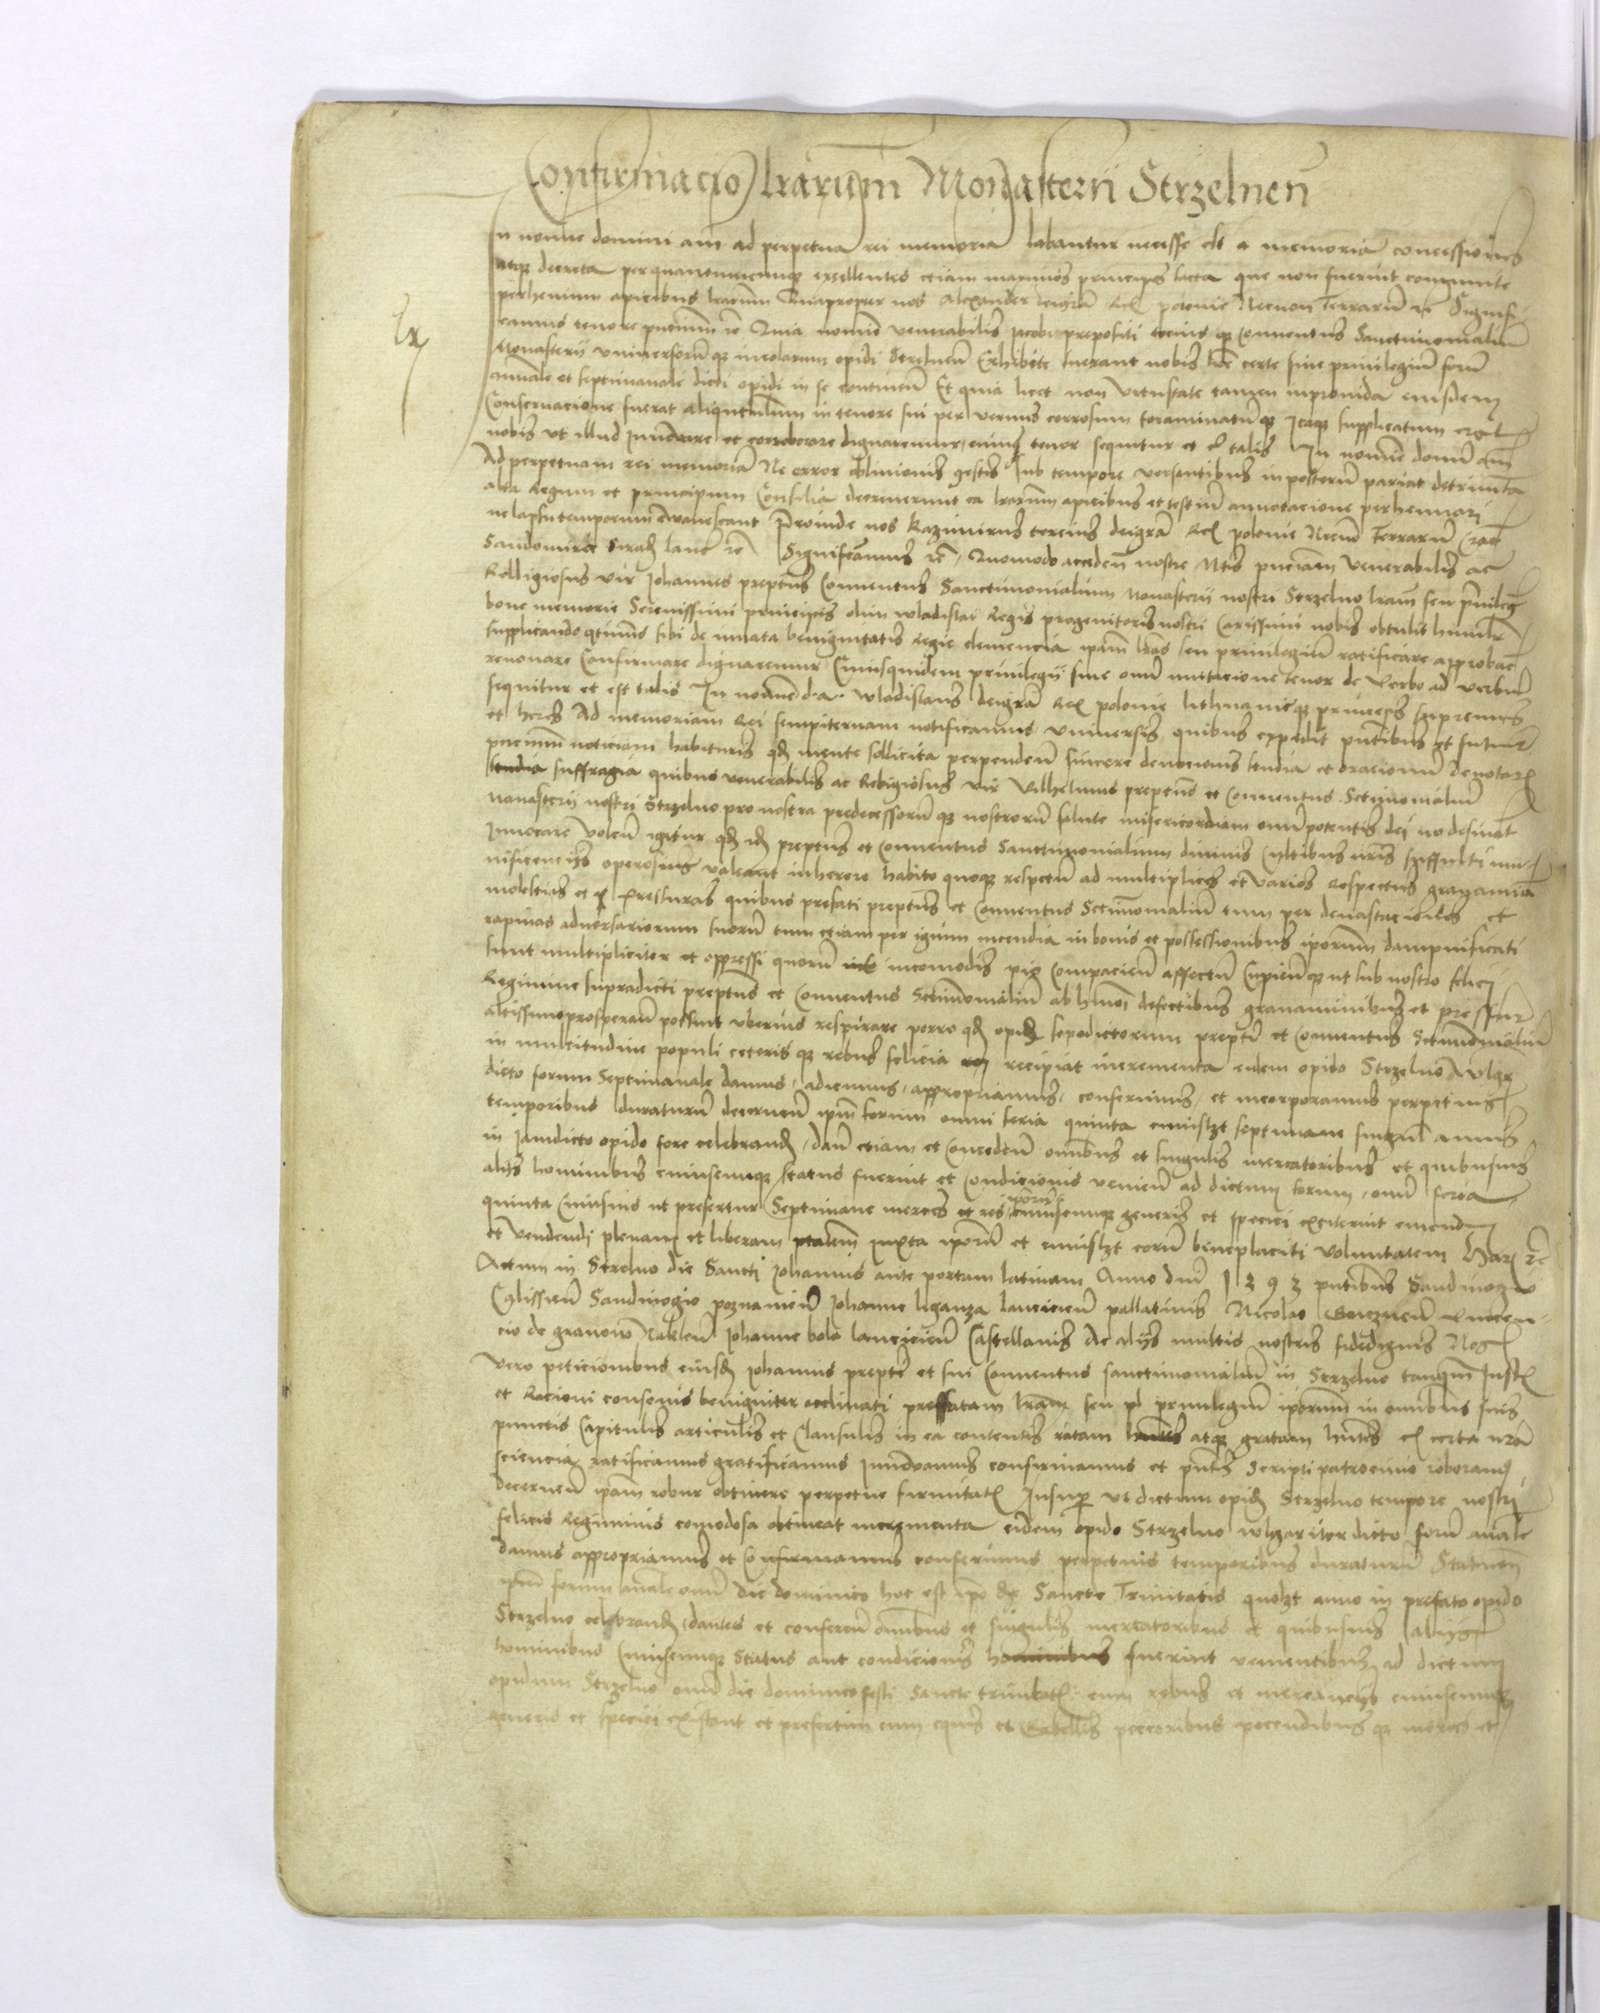 Confirmacio lrarum Monasterii Strzelnen
In nomine domini am ad perpetua rei memoria labantur necesse est a memoria concessiones
atq decreta per quantumcumq excellentes etiam maximos principes facta que non fuerint communite
perhennium apicibus lrarum Quapropter nos Alexander dei gra Rex polonie Necnon Terrarum etc Signifi
Ex
camus tenore pncium etc Quia nomine venerabilis Jacobi prepositi tocius q Conventus Sanctimonialium
Monasterii universorumq incolarum opidi Strelnen Exhibite fuerant nobis lre certe sive privilegium forum
annale et septimanale dicti opidi in se continen Et quia licet non vetustate tamen improvida eiusdem
Conservacione fuerat aliquantulum in tenore sui per vermes corrosum foraminatumq Itaq supplicatum
nobis ut illud Innovare et corroborare dignaremur, cuius tenor sequitur et est talis In nomine domini am
Ad perpetuam rei memoria Ne error oblivionis gestis sub tempore versantibus in posterum pariat detrimenta
alta Regum et principum Consilia decreverunt ea lrarum apicibus et testium annotacione perhennari
ne lapsu temporum evanescant proinde nos Kazimirus tercius dei gra Rex polonie Necnon Terrarum Crac
Sandomirie Sirad lanc etc Significamus etc Quomodo acceden nostre Mtis pnciam Venerabilis ac
Relligiosus vir Johannes preptus Conventus Sanctimonialium Monasterii nostri Strzelno lram seu privileg
bone memorie Serenissimi principis olim wladislai Regis progenitoris nostri Carissimi nobis obtulit humilr
supplicando qtinus sibi de innata benignitatis Regie clemencia ipam lras seu privilegium ratificare approbare
renovare Confirmare dignaremur Cuiusquidem privilegii sine omni mutacione tenor de verbo ad verbum
sequitur et est talis In nomine d a Wladislaus dei gra Rex polonie lithuanieq princeps supremus
et heres Ad memoriam Rei sempiternam notificamus universis quibus expedit pntibus et futuris
pncium noticiam habituris qd mente sollicita perpenden sincere devocionis studia et oracionum devotar
studia suffragia quibus venerabilis ac Religiosus vir Vilhelmus preptus et Conventus Sctimonialium
Monasterii nostri Strzelno pro nostra predecessorumq nostrorum salute misericordiam omnipotentis dei no desinat
Invocare volen igitur qd idem preptus et Conventus Sanctimonialium divinis Cultibus nris suffulti mu
nificencys operosius valeant inherere habito quoq respectu ad multiplices et varios Respectus gravamina
molestias et pressuras quibus prefati preptus et Conventus Sctimonialium tum per devastaciones et
rapinas adversariorum suorum tum etiam per ignium incendia in bonis et possessionibus iporum dampnificati
sunt multipliciter et oppressi quorum incomodis pio Compacien affectu Cupienq ut sub nostro felici
Regimine supradicti preptus et Conventus Sctimonialium ab hmoi defectibus gravaminibus et pressur
altissimo prosperan possint uberius respirare porro qd opid sepedictorum prepti et Conventus Sctimonialium
in multitudine populi ceterisq rebus felicia recipiat incrementa eidem opido Strzelno Vulgr
dicto forum Septimanale damus, adicimus, appropriamus, conferimus, et incorporamus perpetuis
temporibus duraturum decernen ipm forum omni feria quinta cuiuslzt septimane singulis annis
in Jamdicto opido fore celebrand, dan etiam et conceden omnibus et singulis mercatoribus et quibusvis
alys hominibus cuiuscumq status fuerint et Condicionis venien ad dictum forum, omni feria
quinta cuiusvis ut prefertur Septimane merces et res iporum cuiuscumq generis et speciei extiterint emendi
et vendendi plenam et liberam ptatem iuxta iporum et cuiuslzt eorum beneplaciti voluntatem Har etc
Actum in Strelno die Sancti Johannis ante portam latinam Anno dni 1393 pntibus Sandivogio
Calissien Sandivogio poznanien Johanne liganza lancicien pallatinis Nicolao Gneznen vincen
cio de granow Naklen Johanne bolo lancicien Castellanis Ac alys multis nostris fidedignis Nos
vero peticionibus eiusd Johannis prepti et sui Conventus sanctimonialium in Strzelno tanqm Iustis
et Racioni consonis benigniter acclinati prefatam lram seu privilegium iporum in omnibus suis
punctis Capitulis articulis et Clausulis in ea contentis ratam atq gratam hntes ex certa nra
sciencia ratificamus gratificamus Innovamus confirmamus et pntis scripti patrocinio roborand
decernen ipam robur obtinere perpetue firmitatis Insup ut dictum opid Strzelno tempore nostri
felicis Regiminis comodosa obtineat incrementa eidem opido Strzelno vlgariter dicto forum annale
damus appropriamus et Confirmamus conferimus perpetuis temporibus duraturum Statuen
ipm forum annale omni die dominico hoc est ipo die Sancte Trinitatis quolzt anno in prefato opido
Strzelno celebrand, dantes et conferen omnibus et singulis mercatoribus et quibusvis alys
hominibus Cuiuscumq Status aut condicionis fuerint venientibus ad dictum
opidum Strzelno omni die dominico festi Sancte trinitatis cum rebus et mercancys cuiuscumq
generis et speciei existant et presertim cum equis et Caballis pecoribus pecudibusq merces et